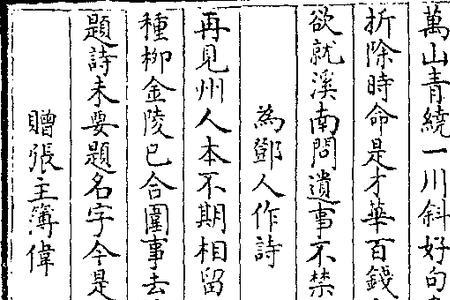 萬山青繞一川斜好句
折除時命是才華百錢
欲就溪南問遺事不禁
為鄧人作詩
再見州人本不期相留
種柳金陵已合圍事去
題詩未要題名字今是
贈張主簿偉